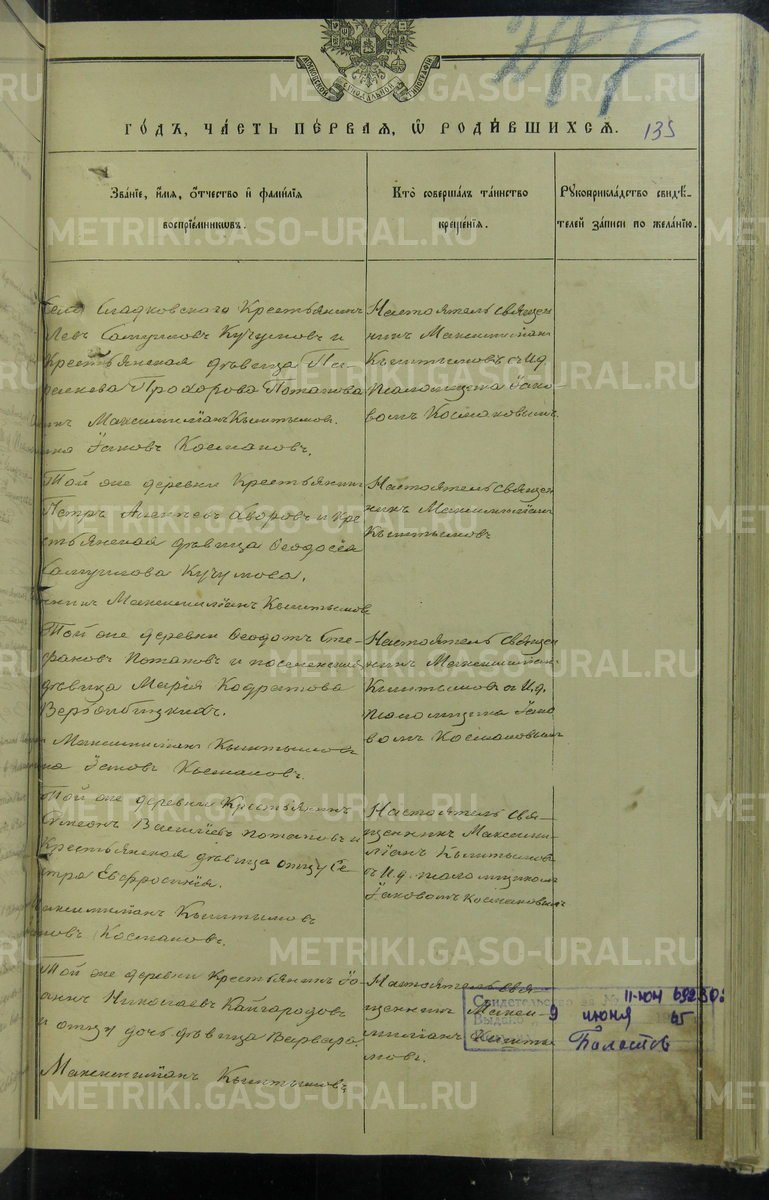 МОСКОВСКОЙ СѴНОДАЛЬНОЙ ТИПОГРАФІИ
ГО́ДЪ, ЧА́СТЬ ПЕ́РВАѦ, Ѡ҆ РОДИ́ВШИХСѦ.
135
Зва́нїе, и҆́мѧ, ѻ҆́тчество и҆ фами́лїѧ
воспрїе́мникѡвъ.
Кто̀ соверша́лъ та́инство
креще́нїѧ.
Рꙋкоприкла́дство свидѣ́-
телей за́писи по жела́нїю.
Села Сладковскаго Крестьянинъ
Левъ Самуиловъ Кучумовъ и
Крестьянская дѣвица Па-
раскева Прохорова Потапова
Максимилїанъ Кыштымовъ.
Їаковъ Космаковъ.
Настоятель Священ
никъ Максимилїан
Кыштымовъ с И.д.
псаломщика Їако-
вомъ Космаковымъ.
Той же деревни Крестьянинъ
Петръ Яворовъ и Кре
стьянская дѣвица Ѳеодосїя
Самуилова Кучумова.
Максимилїанъ Кыштымовъ
Настоятель Священ
никъ Максимилїан
Кыштымовъ
Той же деревни Ѳеодотъ Сте-
фановъ Потаповъ и поселенская
дѣвица Марїя Кодратова
Вербицкихъ.
Максимилїанъ Кыштымовъ
Їаковъ Космаковъ.
Настоятель Священ
никъ Максимилїан
Кыштымовъ с И.д.
псаломщика Їако
вомъ Космаковымъ
Той же деревни Крестьянинъ
Симеонъ Василїевъ Потаповъ и
Крестьянская дѣвица отцу се-
стра Евфросинїя.
Максимилїанъ Кыштымовъ
Космаковъ.
Настоятель Свя-
щенникъ Максими-
лїанъ Кыштымовъ
с И.д. псаломщикомъ
Їаковомъ Космаковымъ
Той же деревни Крестьянинъ Їо-
аннъ Николаевъ Кайгородовъ
и отцу дочь дѣвица Варвара.
Максимилїанъ Кыштымовъ
Настоятель Свя-
щенникъ Макси-
милїанъ Кышты
мовъ.
Свидетельство за №
II-ЮН 692502
Выдано 9 июня 65
METRIKI.GASO-URAL.RU